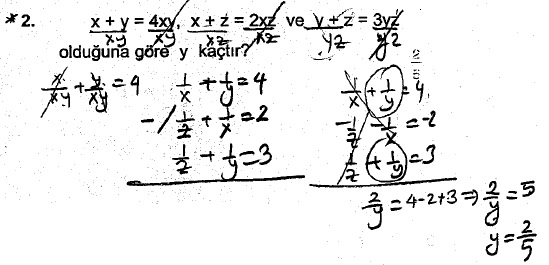 *2. x + y = 4xy, x + z = 2xz ve y + z = 3yz
xy xy xz xz yz yz
olduğuna göre y kaçtır?
x/xy + y/xy = 4
1/x + 1/y = 4
- / 1/z + 1/x = 2
1/z + 1/y = 3
1/x + 1/y = 4
-1/z - 1/x = -2
1/z + 1/y = 3
2/y = 4-2+3 ⇒ 2/y = 5
y = 2/5